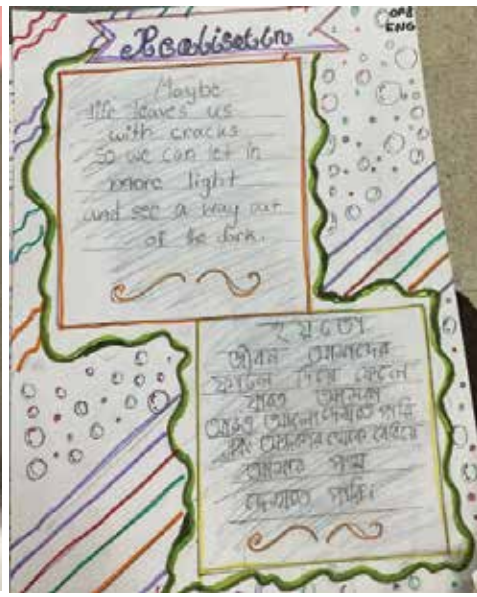 COP8
ENG
Realisation
Maybe
life leaves us
with cracks
so we can let in
more light
and see a way out
of the dark.
হয়তো
জীবন আমাদের
ফাটল দিয়ে ফেলে
যাতে আমরা
আরও আলো দেখতে পারি
এবং অন্ধকার থেকে বেরিয়ে
আসার পথ
দেখতে পারি।